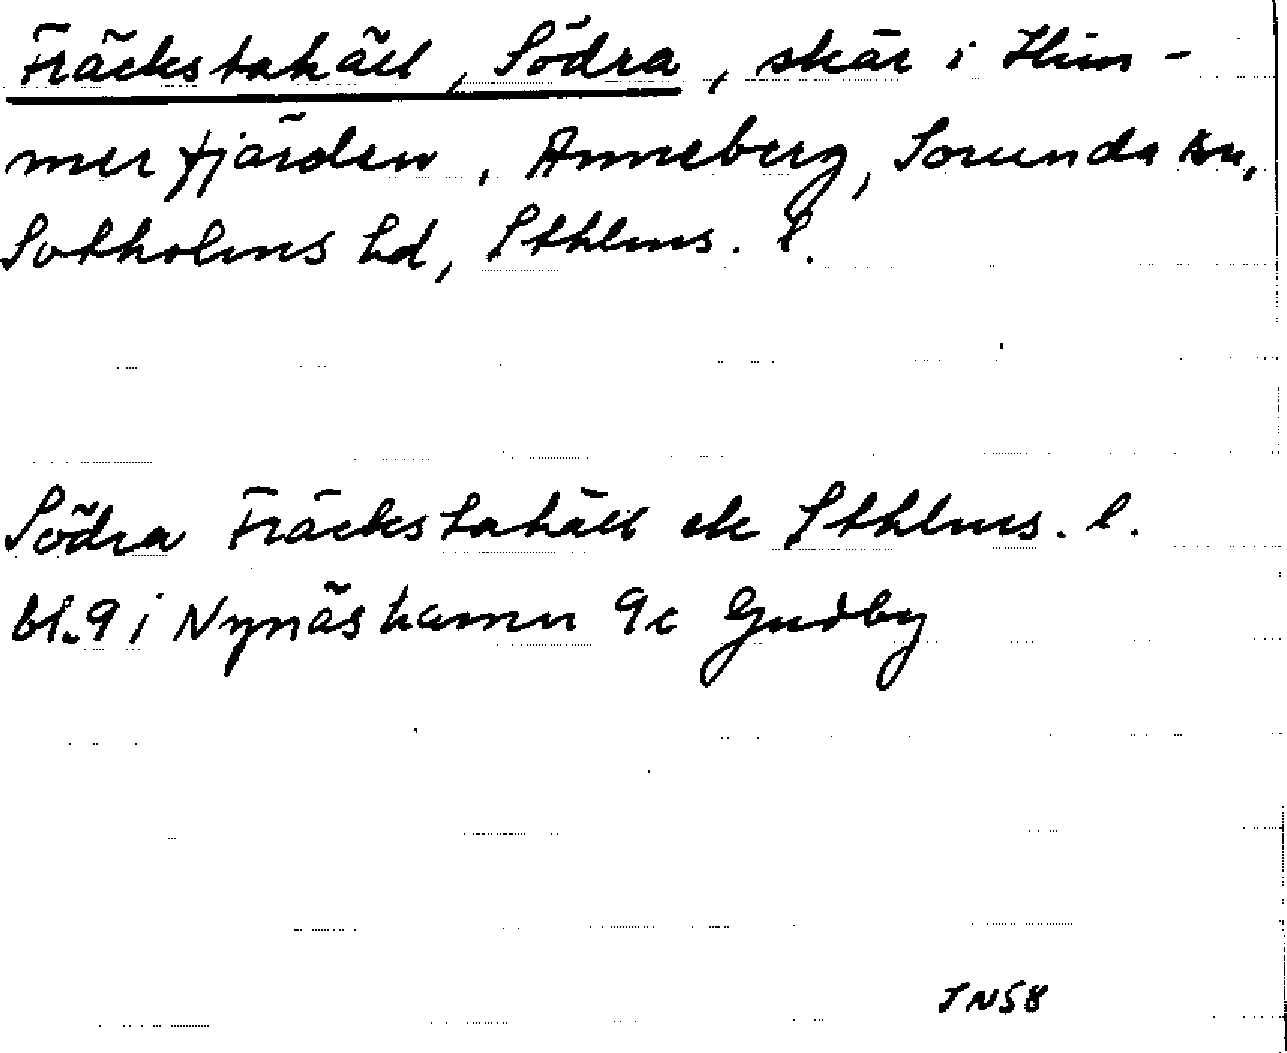 Fräckstahäll, Södra, skär i Him-
merfjärden, Anneberg, Sorunda sn,
Sotholms hd, Sthlms. l.
Södra Fräckstahäll ek Sthlms. l.
bl. 9 i Nynäshamn 9c Gudby
JN58